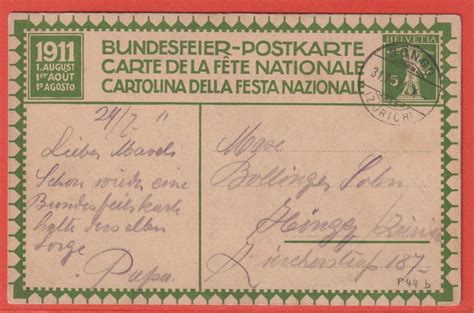 1911
1. AUGUST
1ER AOÛT
1º AGOSTO
BUNDESFEIER-POSTKARTE
CARTE DE LA FÊTE NATIONALE
CARTOLINA DELLA FESTA NAZIONALE
HELVETIA
HÖNGG
(ZÜRICH)
Lieber
Schon wieder eine
Bundesfeierkarte
alten
Sorge
Papa
Bollinger Sohn
Höngg Zürich
Zürcherstraße 187